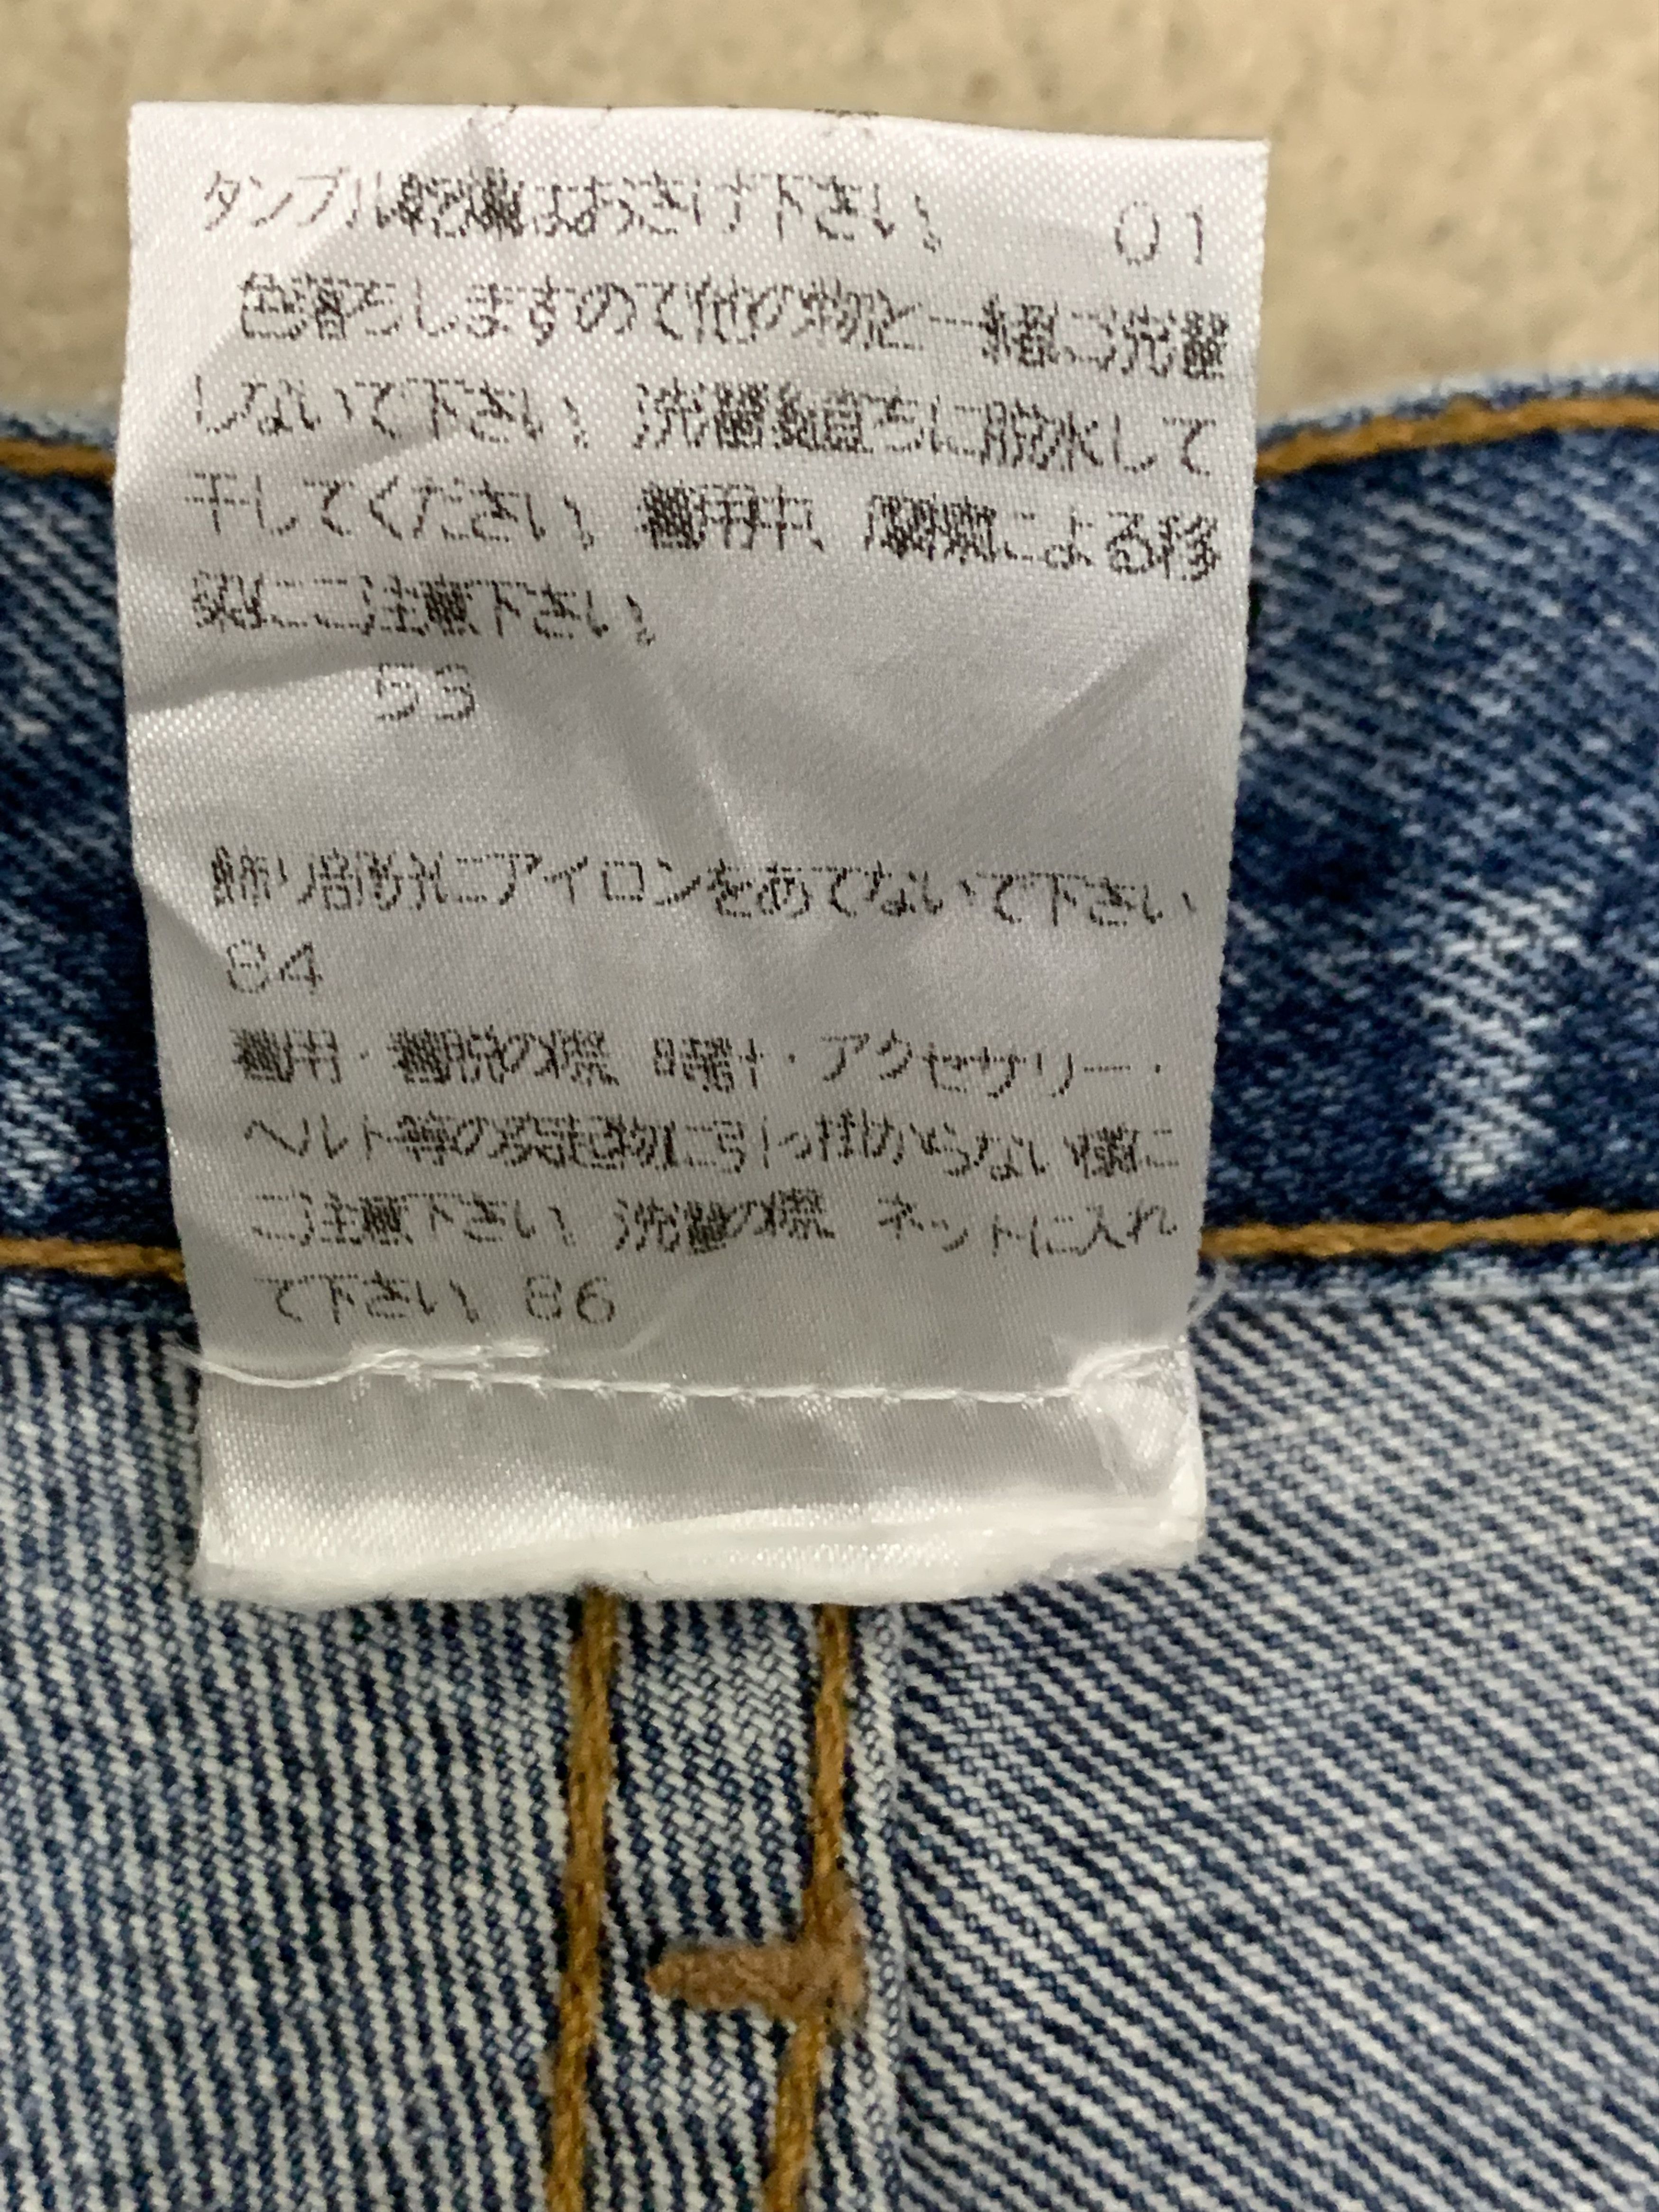 タンブル乾燥はおさけ下さい。 01
色落ちしますので他の物と一緒に洗濯
しないで下さい。洗濯後直ちに脱水して
干してください。着用中、摩擦による移
染にご注意下さい。
53
飾り部分にアイロンをあてないで下さい
84
着用・着脱の際 時計・アクセサリー・
ベルト等の突起物に引っ掛からない様に
ご注意下さい。洗濯の際 ネットに入れ
て下さい。86